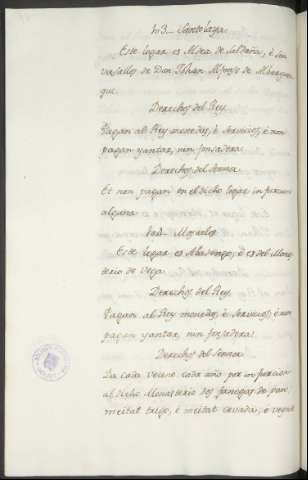 Santolaja
Este logar es Aldea de Saldaña, è son
vasallos de Don Johan Alfonso de Alburquer
que.
Derechos del Rey.
Pagan al Rey monedas, è servicios, è non
pagan yantar, nin fonsadera.
Derechos del Sennor
Et non pagan en el dicho logar infurcion
alguna
Moslares
Este logar es Abadengo, è es del Mones
terio de Vega.
Derechos del Rey.
Pagan al Rey monedas, è servicios, è non
pagan yantar, nin fonsadera.
Derechos del Sennor
La cada vecino cada año por infurcion
al dicho Monasterio dos fanegas de pan,
meitat trigo, è meitat cevada, è